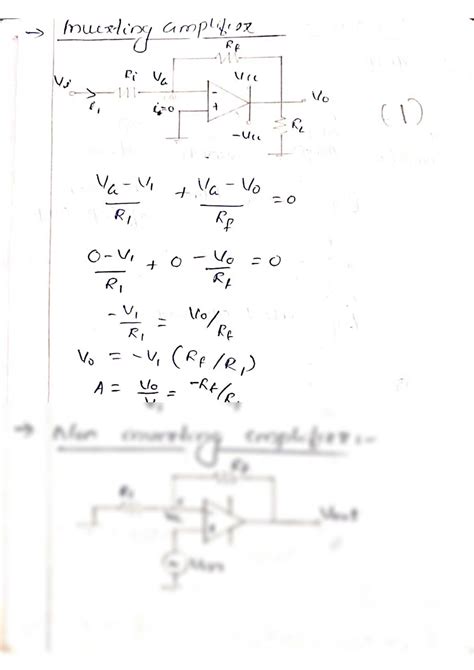 → Inverting amplifier
Rf
Vi Ri Va Vcc
i1 i=0 - + Vo
-Vcc RL
(1)
Va - V1 / R1 + Va - Vo / Rf = 0
0 - V1 / R1 + 0 - Vo / Rf = 0
- V1 / R1 = Vo / Rf
Vo = -V1 (Rf / R1)
A = Vo / V = -Rf / R
→ Non inverting amplifier :-
Rf
R1
- +
Vout
Vin